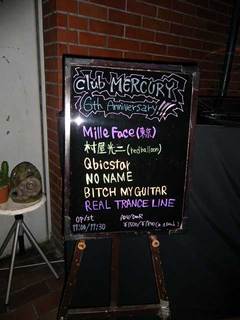 Club MERCURY
6th Anniversary!!!
Mille Face (東京)
村屋光二 (redballoon)
Qbicstar
NO NAME
BITCH MY GUITAR
REAL TRANCE LINE
OP/ST
17:00/17:30